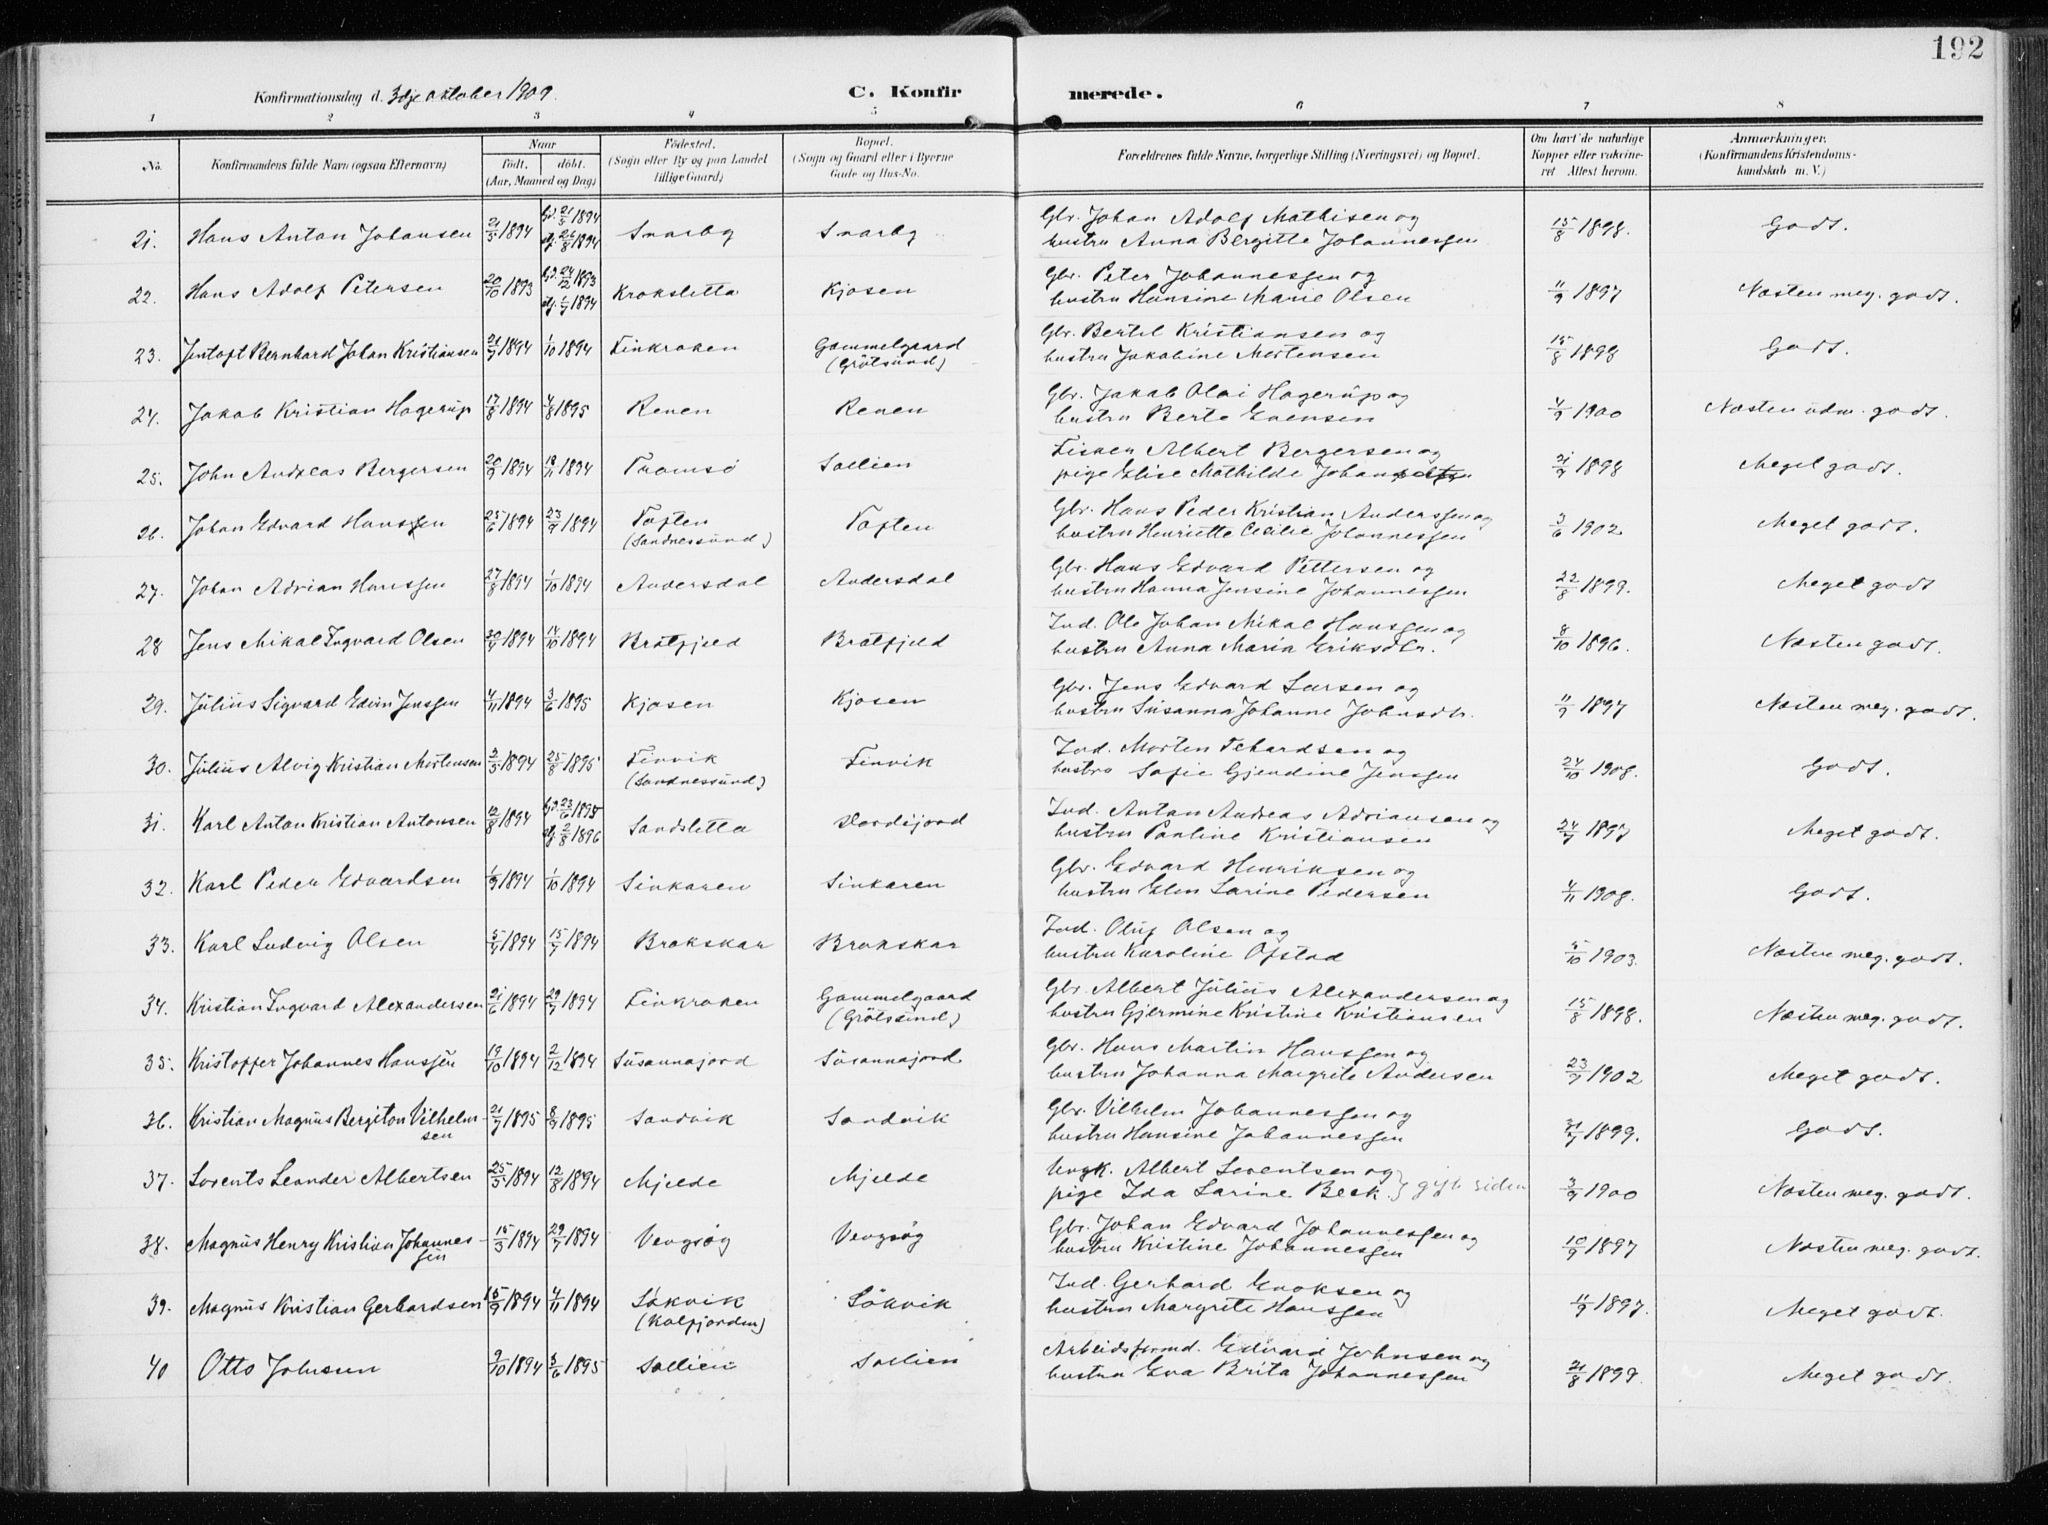 192
Konfirmationsdag d. 3dje oktober 1909.
C. Konfirmerede.
1 2 3 4 5 6 7 8
No. Konfirmandens fulde Navn (ogsaa Efternavn) Naar født, døbt. (Aar, Maaned og Dag) Fødested. (Sogn eller By og paa Landet tillige Gaard) Bopæl. (Sogn og Gaard eller i Byerne Gade og Hus-No. Forældrenes fulde Navne, borgerlige Stilling (Næringsvei) og Bopæl. Om havt de naturlige Kopper eller vakcineret Attest herom. Anmærkninger. (Konfirmandens Kristendomskundskab m. V.)
21. Hans Anton Johansen 21/5 1894 hd. 21/5 1894 Snarby Snarby Gbr. Johan Adolf Mathisen og 15/8 1898. Godt.
stf. 26/8 1894 hustru Anna Bergitte Johannessen
22. Hans Adolf Petersen 20/10 1893 hd. 24/12 1893 Kroksletta Kjosen Gbr. Peter Johannessen og 11/9 1897 Næsten meg. godt.
stf. 1/7 1894 hustru Hansine Marie Olsen
23. Jentoft Bernhard Johan Kristiansen 21/7 1894 1/10 1894 Finkroken Gammelgaard Gbr. Bertel Kristiansen og 15/8 1898 Godt.
(Grötsund) hustru Jakobine Mortensen
24. Jakob Kristian Hagerup 17/8 1894 4/8 1895 Renen Renen Gbr. Jakob Olai Hagerup og 4/9 1900 Næsten udm. godt.
hustru Berte Evensen
25. John Andreas Bergersen 20/9 1894 18/11 1894 Tromsö Sollien Fisker Albert Bergersen og 21/9 1898 Meget godt.
pige Elise Mathilde
26. Johan Edvard Hanssen 25/6 1894 23/9 1894 Toften Toften Gbr. Hans Peder Kristian Anderssen og 3/6 1902 Meget godt.
(Sandnessund) hustru Henriette Cecilie Johannessen
27. Johan Adrian Hanssen 27/8 1894 1/10 1894 Andersdal Andersdal Gbr. Hans Edvard Pettersen og 22/8 1899. Meget godt
hustru Hanna Jensine Johannessen
28 Jens Mikal Ingvard Olsen 1894 14/10 1894 Bratfjeld Bratfjeld Ind. Ole Johan Mikal Hanssen og 8/10 1896. Næsten godt.
hustru Anna Maria Eriksdtr.
29. Julius Sigvard Edvin Jenssen 4/11 1894 3/6 1895 Kjosen Kjosen Gbr. Jens Edvard Larsen og 11/9 1897 Næsten meg. godt.
hustru Susanna Johanne Johnsdtr.
30. Julius Alvig Kristian Mortensen 1894 25/8 1895 Finvik Finvik Ind. Morten Tchardsen og 24/10 1908. Godt.
(Sandnessund) hustru Sofie Gjendine Jenssen
31. Karl Anton Kristian Antonsen 12/8 1894 hd. 23/6 1895 Sandsletta Ind. Anton Andreas Adriansen og 24/7 1897 Meget godt.
stf. 2/8 1896 hustru Pauline Kristiansen
32. Karl Peder Edvardsen 1/9 1894 1/10 1894 Sinkaren Sinkaren Gbr. Edvard Henriksen og 4/11 1908. Godt.
hustru Elen Larine Pedersen
33. Karl Ludvig Olsen 5/4 1894 15/7 1894 Brokskar Brokskar Ind. Oluf Olsen og 5/10 1903. Næsten meg. godt.
hustru Karoline Ofstad
34. Kristian Ingvard Alexandersen 21/6 1894 29/7 1894 Finkroken Gammelgaard Gbr. Albert Julius Alexandersen og 15/8 1898. Næsten meg. godt.
(Grötsund) hustru Gjermine Kristine Kristiansen
35. Kristoffer Johannes Hanssen 19/10 1894 2/12 1894 Susannajord Susannajord Gbr. Hans Martin Hanssen og 23/7 1902 Meget godt.
hustru Johanna Margrete Andersen
36. Kristian Magnus Bergiton Vilhelm- 21/7 1895 8/9 1895 Sandvik Sandvik Gbr. Vilhelm Johannessen og 31/7 1899. Godt.
sen hustru Hansine Johannessen
37. Lorents Leander Albertsen 25/5 1894 12/8 1894 Mjelde Mjelde Ungk. Albert Lorentsen og 3/9 1900 Næsten meg. godt.
pige Ida Larine Beck. } gift siden
38. Magnus Henry Kristian Johannes- 15/5 1894 29/7 1894 Vengsøy Vengsøy Gbr. Johan Edvard Johannessen og 10/9 1897 Næsten meg. godt.
sen hustru Kristine Johannessen
39. Magnus Kristian Gerhardsen 15/9 1894 4/11 1894 Søkvik Søkvik Ind. Gerhard Enoksen og 11/9 1897. Meget godt.
(Kalfjorden) hustru Margrete Hanssen
40 Otto Johnsen 2/10 1894 3/6 1895 Sollien Sollien Arbeidsformd. Edvard Johnsen og 21/8 1899. Meget godt.
hustru Eva Brita Johannessen